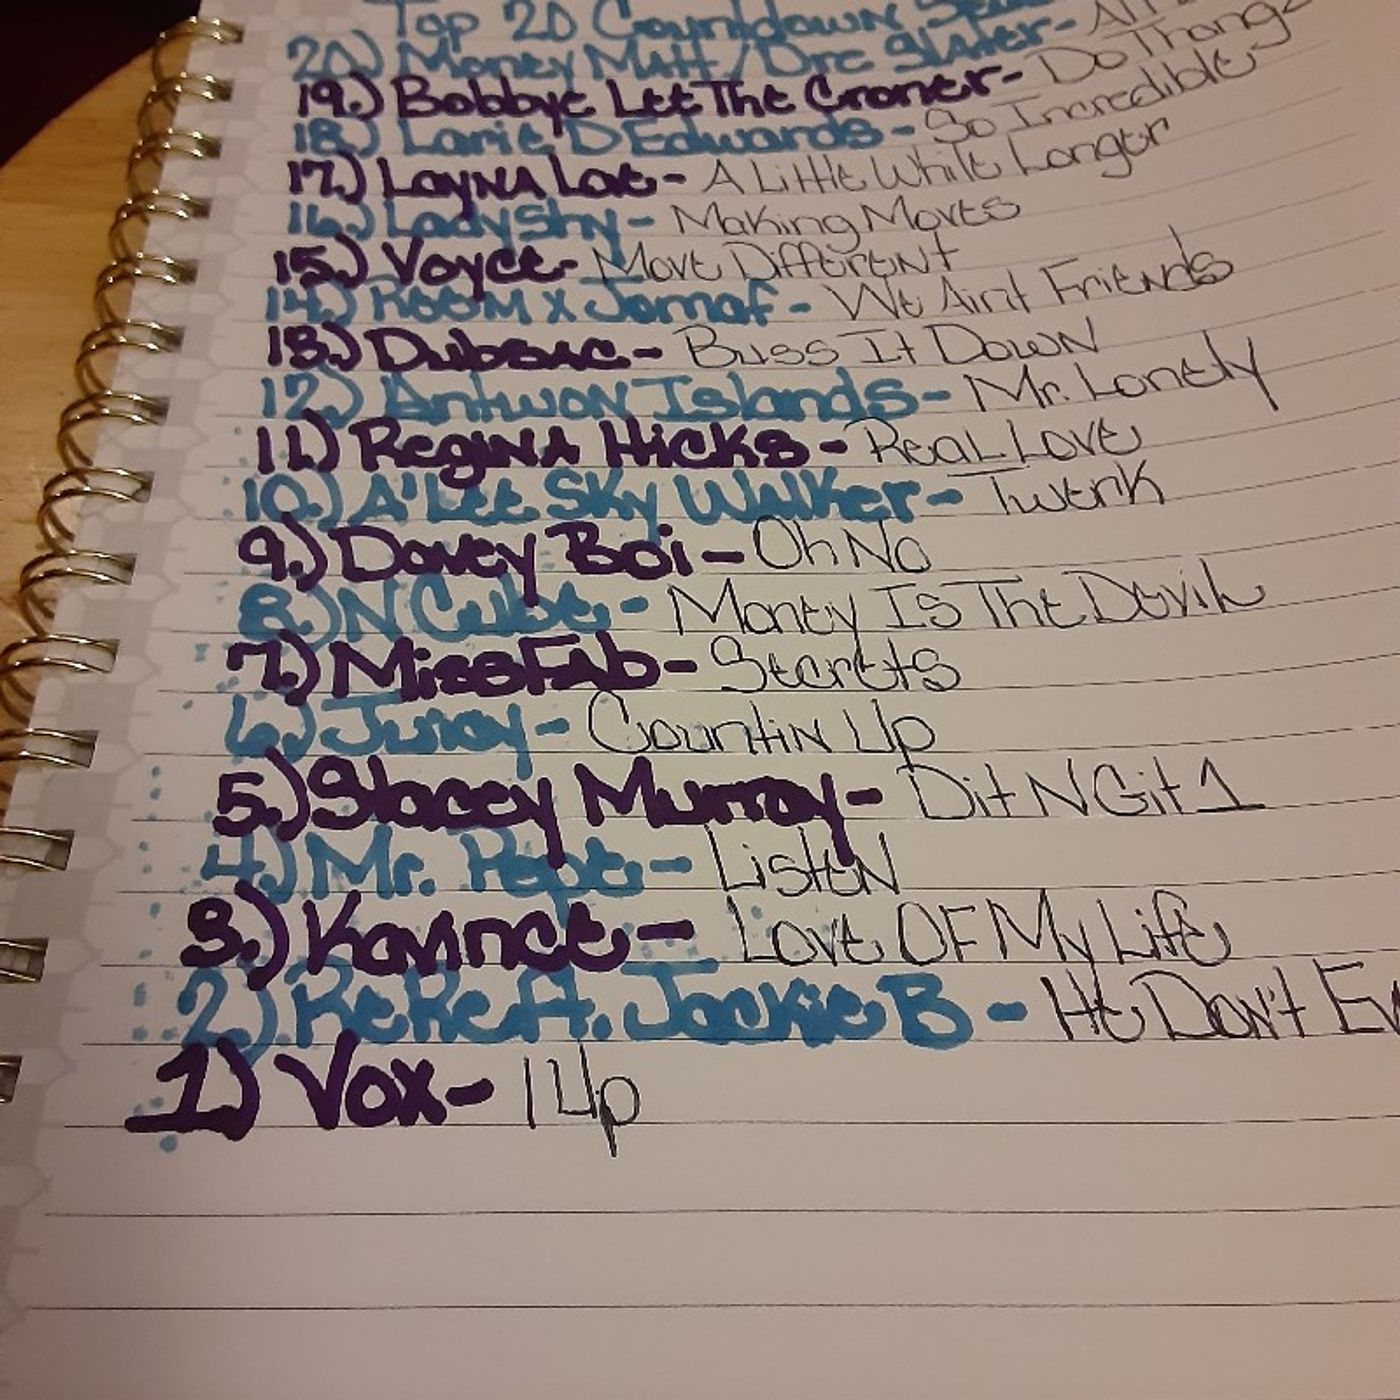 Top 20 Countdown
20.) Money Matt/Dre Slater- All
19.) Bobbye Let The Croner- Do Thangz
18.) Larie D Edwards- So Incredible
17.) Layna Love- A Little While Longer
16.) Lady Shy- Making Moves
15.) Voyce- Move Different
14.) RooM x Jomaf- We Aint Friends
13.) Dubsac- Buss It Down
12.) Antwon Islands- Mr. Lonely
11.) Regina Hicks- Real Love
10.) A'Lee Sky Walker- Twerk
9.) Davey Boi- Oh No
8.) N Cube- Money Is The Devil
7.) MissFab- Secrets
6.) Juicy- Countin Up
5.) Stacey Murray- Dit N Git 1
4.) Mr. Pope- Listen
3.) Kavince- Love OF My Life
2.) ReRe ft. Jackie B- He Don't
1.) Vox- 1 Up